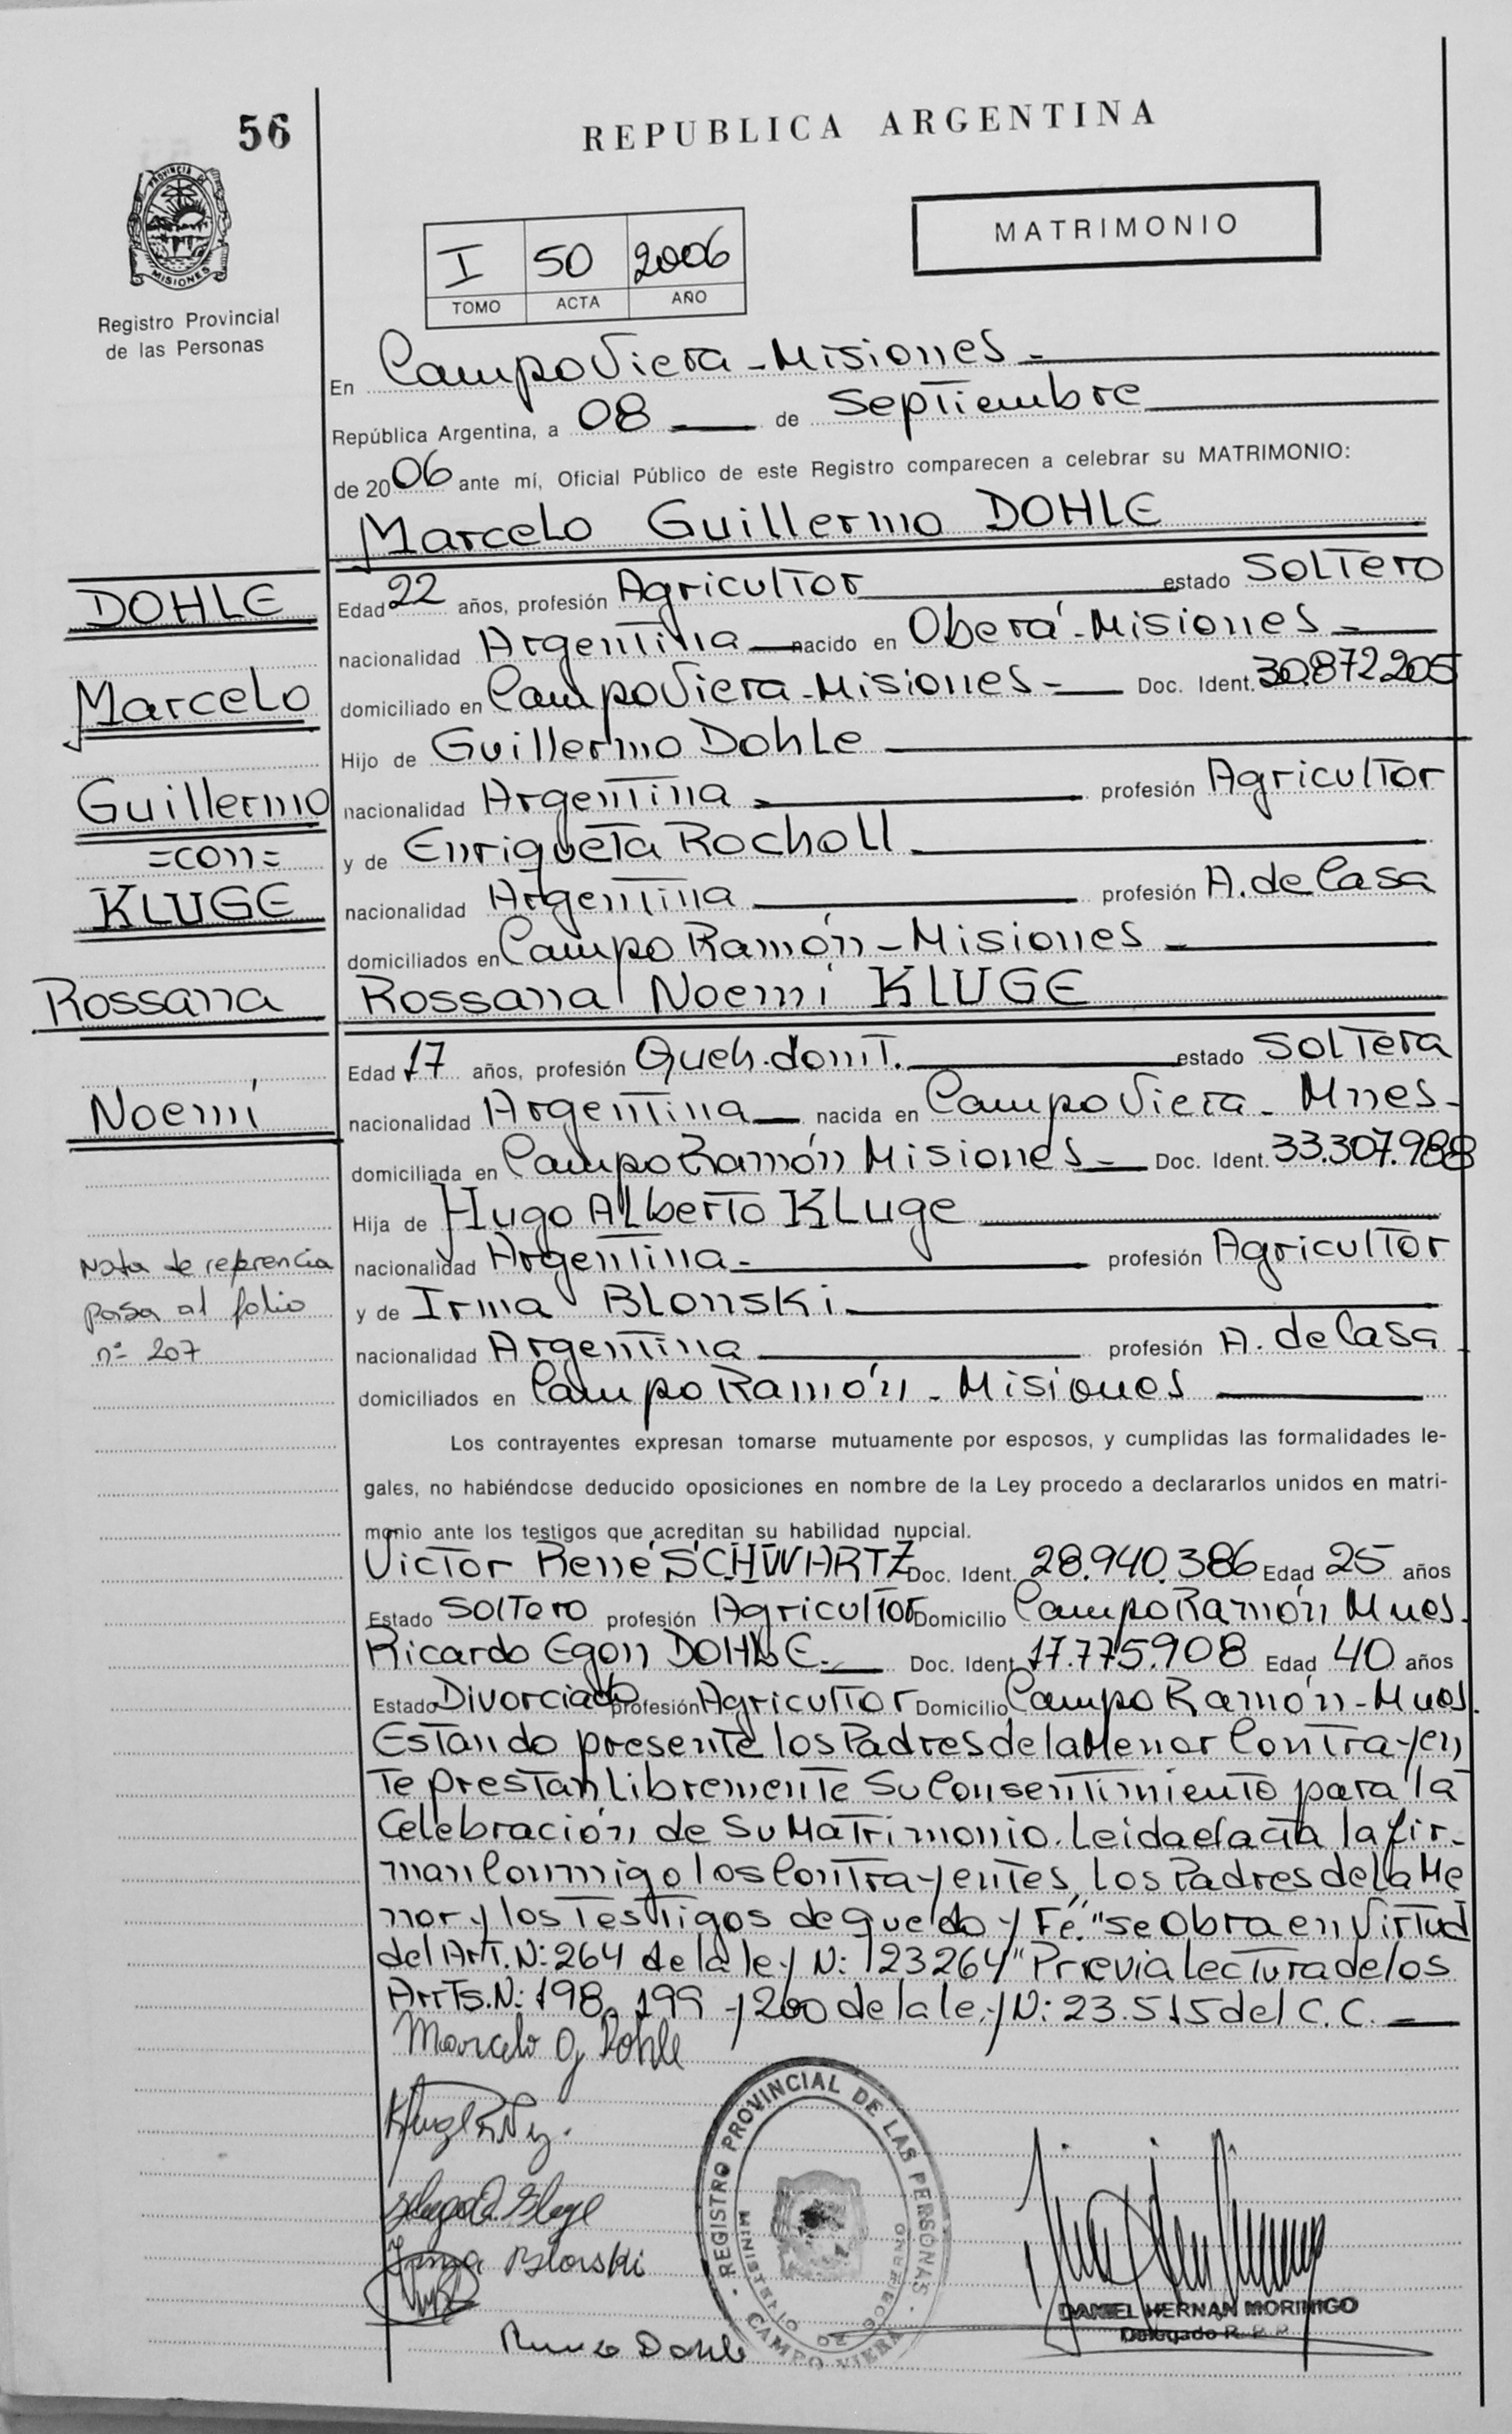 56
REPUBLICA ARGENTINA
PROVINCIA DE
MISIONES
Registro Provincial
de las Personas
MATRIMONIO
I 50 2006
TOMO ACTA AÑO
En Campo Viera - Misiones -
República Argentina, a 08 de Septiembre
de 2006 ante mí, Oficial Público de este Registro comparecen a celebrar su MATRIMONIO:
Marcelo Guillermo DOHLE
DOHLE
Marcelo
Guillermo
=con=
KLUGE
Rossana
Noemi
Edad 22 años, profesión Agricultor estado Soltero
nacionalidad Argentina nacido en Oberá - Misiones -
domiciliado en Campo Viera - Misiones - Doc. Ident. 30.872.205
Hijo de Guillermo Dohle
nacionalidad Argentina profesión Agricultor
y de Enriqueta Rocholl
nacionalidad Argentina profesión A. de Casa
domiciliados en Campo Ramón - Misiones
Rossana Noemi KLUGE
Edad 17 años, profesión Queh. domt. estado Soltera
nacionalidad Argentina nacida en Campo Viera - Mnes -
domiciliada en Campo Ramón Misiones - Doc. Ident. 33.307.988
Hija de Hugo Alberto Kluge
nacionalidad Argentina - profesión Agricultor
y de Irma Blonski
nacionalidad Argentina profesión A. de Casa
domiciliados en Campo Ramón - Misiones
Nota de referencia
pasa al folio
nº 207
Los contrayentes expresan tomarse mutuamente por esposos, y cumplidas las formalidades le-
gales, no habiéndose deducido oposiciones en nombre de la Ley procedo a declararlos unidos en matri-
monio ante los testigos que acreditan su habilidad nupcial.
Victor René SCHWARTZ Doc. Ident. 28.940.386 Edad 25 años
Estado Soltero profesión Agricultor Domicilio Campo Ramón Mnes.
Ricardo Egon DOHLE. Doc. Ident. 17.775.908 Edad 40 años
Estado Divorciado profesión Agricultor Domicilio Campo Ramón - Mnes.
Estando presente los Padres de la Menor Contrayen
te prestan Libremente Su Consentimiento para la
Celebración de Su Matrimonio. Leida el acta la fir-
man Conmigo los Contrayentes, Los Padres de La Me
nor y los Testigos de que doy Fé. "Se Obra en Virtud
del Art. N: 264 de la ley N: 23264" Previa lectura de los
Arrts. N: 198, 199 y 200 de la ley N: 23.515 del C. C.
Marcelo G Dohle
Irma Blonski
Dohle
REGISTRO PROVINCIAL DE LAS PERSONAS
MINISTERIO DE GOBIERNO
CAMPO VIERA
DANIEL HERNAN MORINIGO
Delegado R. P. P.